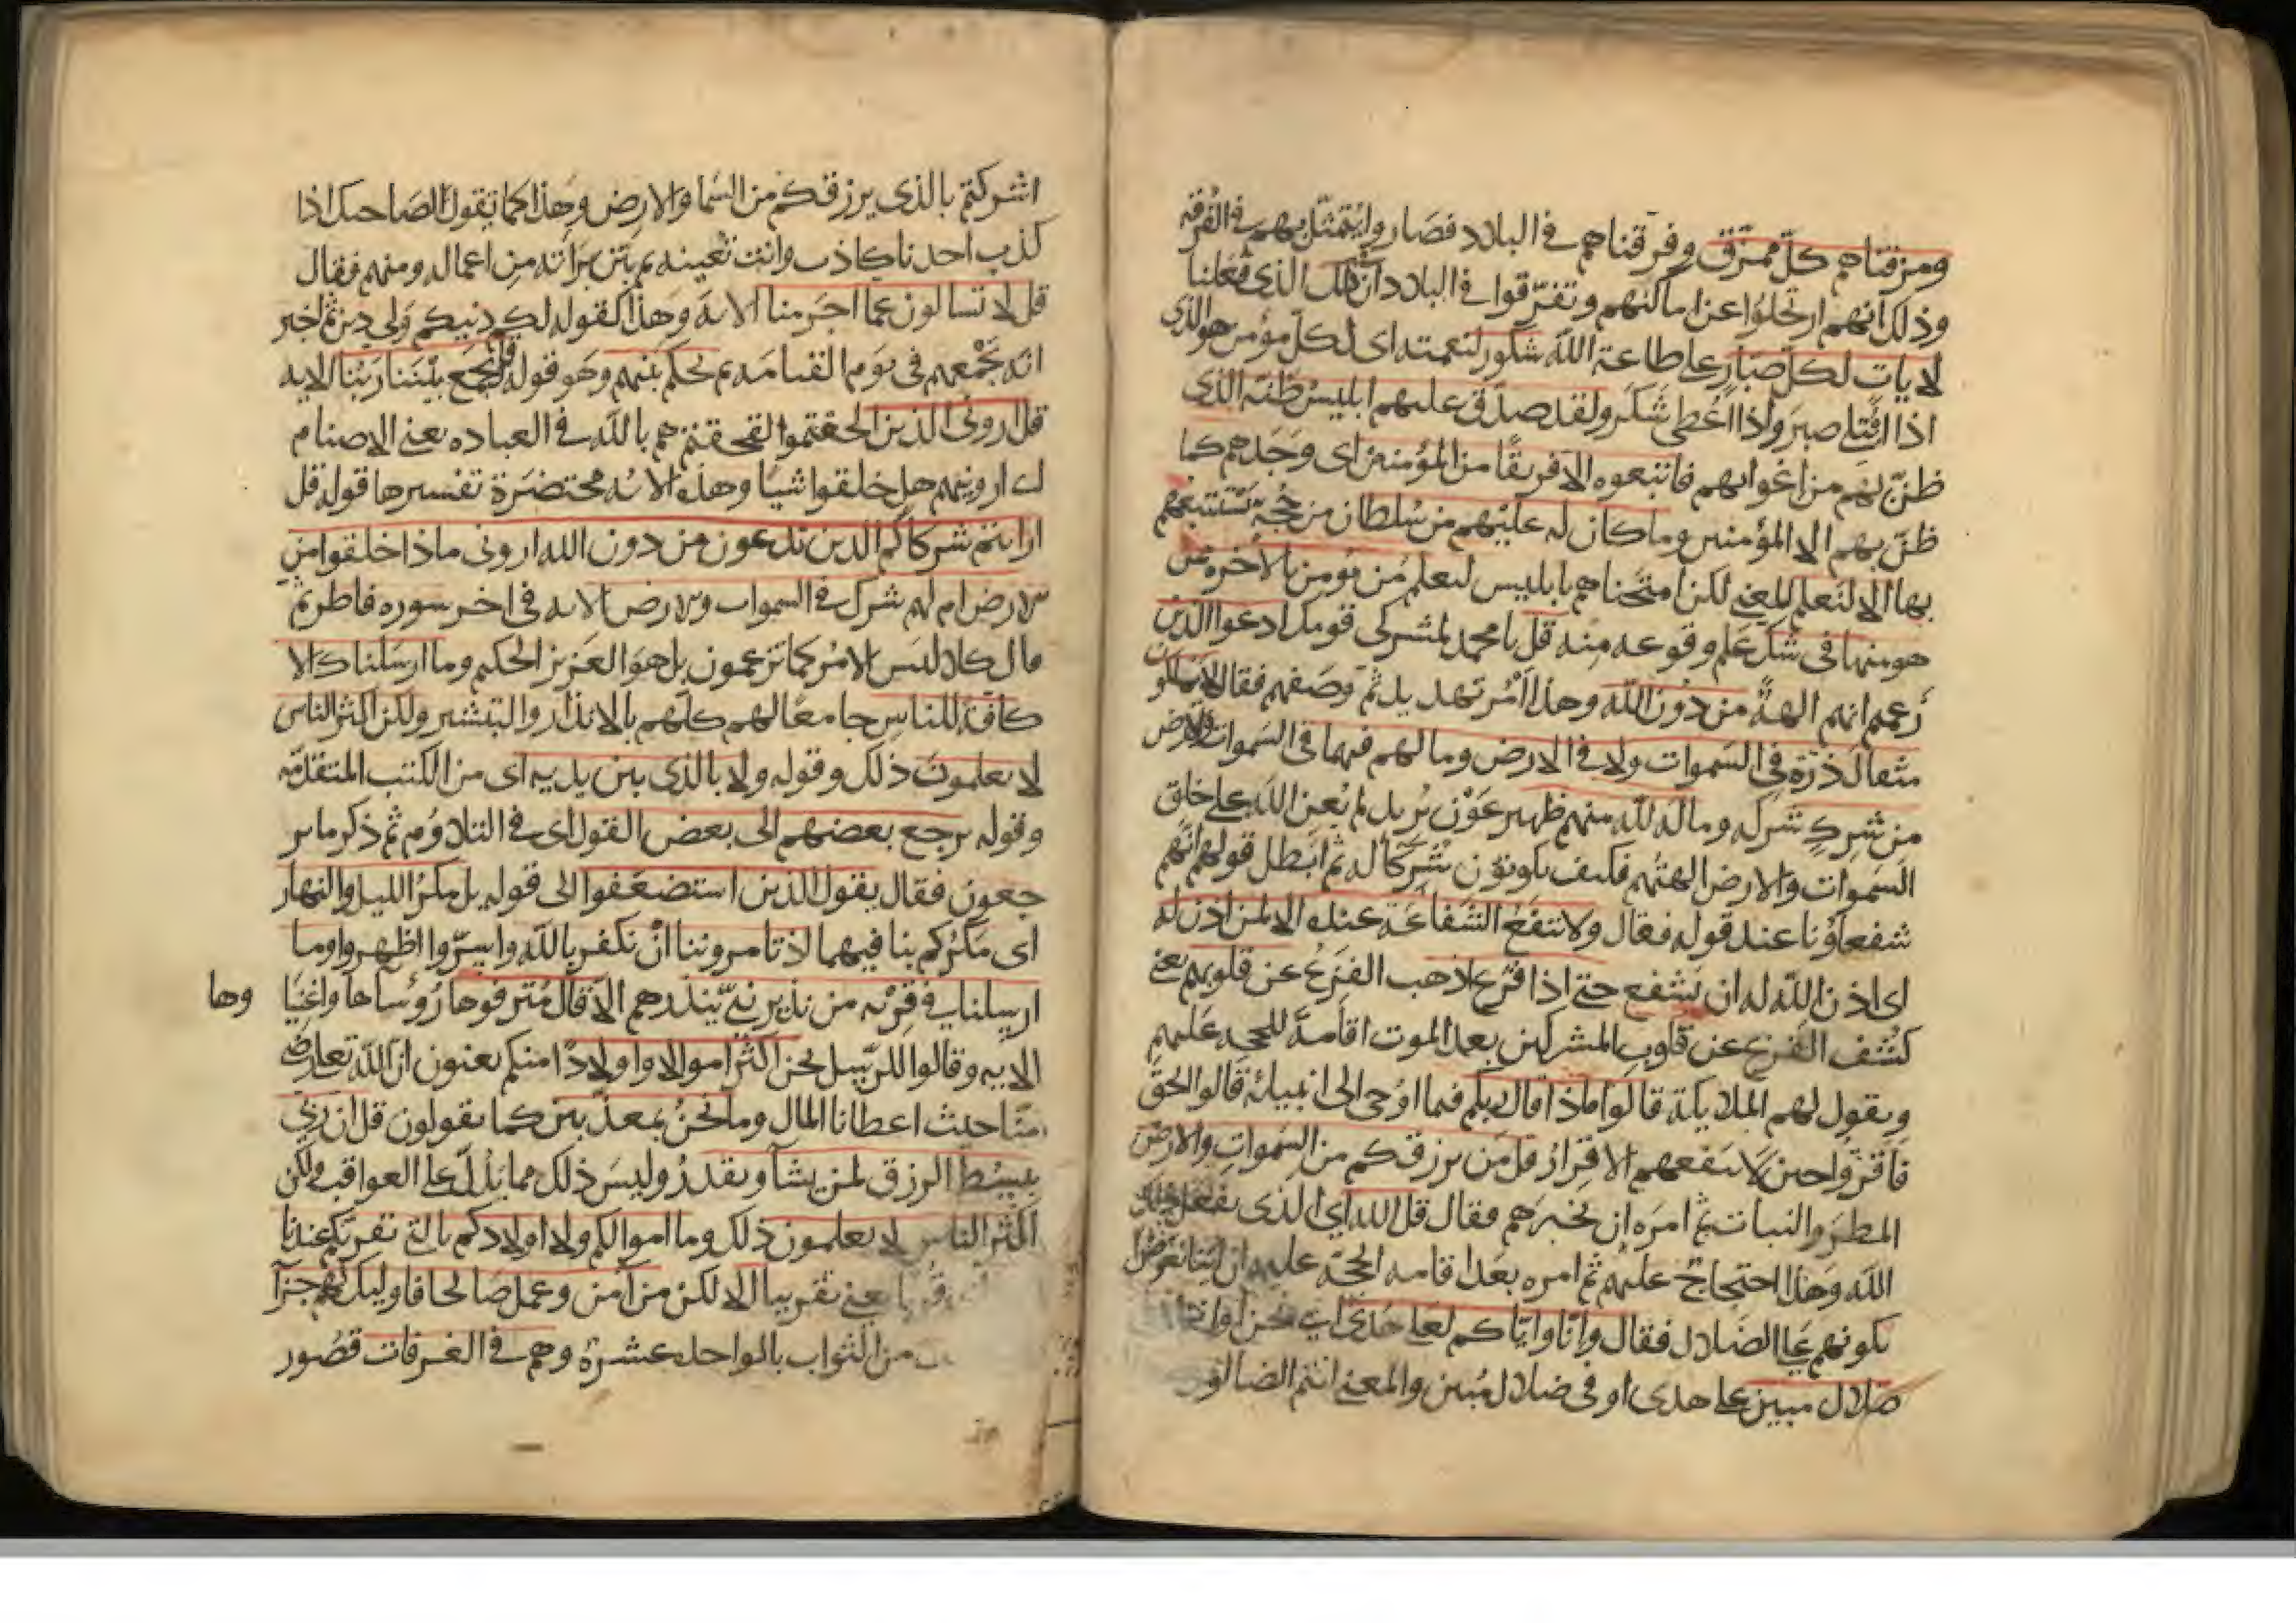 ومزقناهم كل ممزق وفرقناهم في البلاد فصاروا يتمثل بهم في الفرقة
وذلك انهم ارتحلوا عن اماكنهم وتفرقوا في البلاد ان في ذلك الذي فعلنا
لايات لكل صبار على طاعة الله شكور لنعمته اى لكل مؤمن هو الذي
اذا ابتلى صبر واذا اعطى شكر ولقد صدق عليهم ابليس ظنه الذي
ظن بهم من اغوايهم فاتبعوه الا فريقا من المؤمنين اى وجدهم كما
ظن بهم الا المؤمنين وما كان له عليهم من سلطان من حجة يستتبعهم
بها الا لنعلم المعنى لكن امتحناهم بابليس لنعلم من يومن بالاخره ممن
هو منها في شك علم وقوعه منه قل يا محمد لمشركى قومك ادعوا الذين
زعمتم انهم الهة من دون الله وهذا امر تهديد ثم وصفهم فقال لا يملكون
مثقال ذرة في السموات ولا في الارض وما لهم فيهما في السموات والارض
من شرك شركه وما له لله منهم ظهير عون يريد لم يعن الله على خلق
السموات والارض الهتهم فكيف يكونون شركآ له ثم ابطل قولهم انهم
شفعاؤنا عند قوله فقال ولا تنفع الشفاعة عنده الا لمن اذن له
اى اذن الله له ان يشفع حتى اذا فزع اذهب الفزع عن قلوبهم يعنى
كشف الفزع عن قلوب المشركين بعد الموت اقامة للحجه عليهم
ويقول لهم الملايكة قالوا ماذا قال ربكم فيما اوحى الى انبيائه قالوا الحق
فاقروا حين لا ينفعهم الاقرار قل من يرزقكم من السموات والارض
المطر والنبات ثم امره ان يخبرهم فقال قل الله اي الذى يفعل ذلك
الله وهذا احتجاج عليهم ثم امره بعد اقامه الحجة عليهم ان
بكونهم على الضلال فقال وانا واياكم لعلى هدى اى نحن او انتم
ضلال مبين على هدى او في ضلال مبين والمعنى انتم الضالون
اشركتم بالذى يرزقكم من السما والارض وهذا كما تقول لصاحبك اذا
كذب احدنا كاذب وانت تعينه ثم بين براته من اعمالهم ومنهم فقال
قل لا تسالون عما اجرمنا الايه وهذا كقوله لكم دينكم ولى دين ثم اخبر
انه يجمعهم في يوم القيامه ثم يحكم بينهم وهو قوله قل يجمع بيننا ربنا الايه
قل ارونى الذين الحقتموا الحقتموهم بالله في العباده يعنى الاصنام
اى ارونيهم هل خلقوا شيا وهذه الايه مختصرة تفسيرها قوله قل
ارايتم شركاكم الذين تدعون من دون الله ارونى ماذا خلقوا من
الارض ام لهم شرك في السموات والارض الايه في اخر سوره فاطر ثم
قال كلا ليس الامر كما تزعمون بل هو العزيز الحكيم وما ارسلناك الا
كافة للناس جامعا لهم كلهم بالانذار والتبشير ولكن اكثر الناس
لا يعلمون ذلك وقوله ولا بالذى بين يديه اى من الكتب المتقدمه
وقوله يرجع بعضهم الى بعض القول اى في التلاوم ثم ذكر ما ير
جعون فقال يقول الذين استضعفوا الى قوله بل مكر الليل والنهار
اى مكركم بنا فيهما اذ تامروننا ان نكفر بالله واسروا اظهروا وما
ارسلنا في قرية من نذير نبى ينذرهم الا قال مترفوها رؤساها واغنيا وها
الايه وقالوا للرسل نحن اكثر اموالا واولادا منكم يعنون ان الله تعالى رضى
منا حيث اعطانا المال وما نحن بمعذبين كما يقولون قل ان ربى
يبسط الرزق لمن يشا ويقدر وليس ذلك مما يدل على العواقب ولكن
اكثر الناس لا يعلمون ذلك وما اموالكم ولا اولادكم بالتى تقربكم عندنا
يعنى تقريبا الا لكن من آمن وعمل صالحا فاوليك لهم جزآ
من الثواب بالواحد عشرة وهم في الغرفات قصور